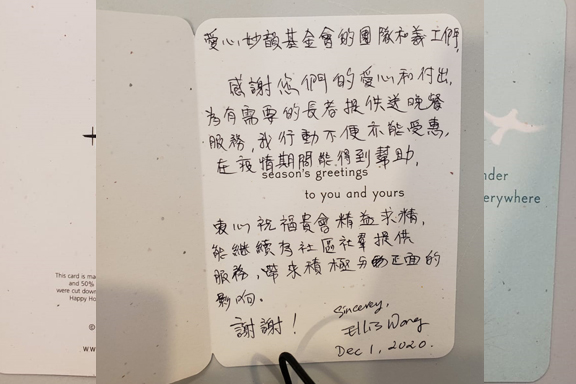 愛心妙饌基金會的團隊和義工們,
感謝您們的愛心和付出,
為有需要的長者提供送晚餐
服務,我行動不便亦能受惠,
在疫情期間能得到幫助,
season's greetings
to you and yours
衷心祝福貴會精益求精,
能繼續為社區社羣提供
服務,帶來積極正面的
影响.
謝謝!
Sincerely,
Ellis Wong
Dec 1, 2020.
This card is ma
and 50%
were cut down
Happy Ho
©
WW
nder
erywhere